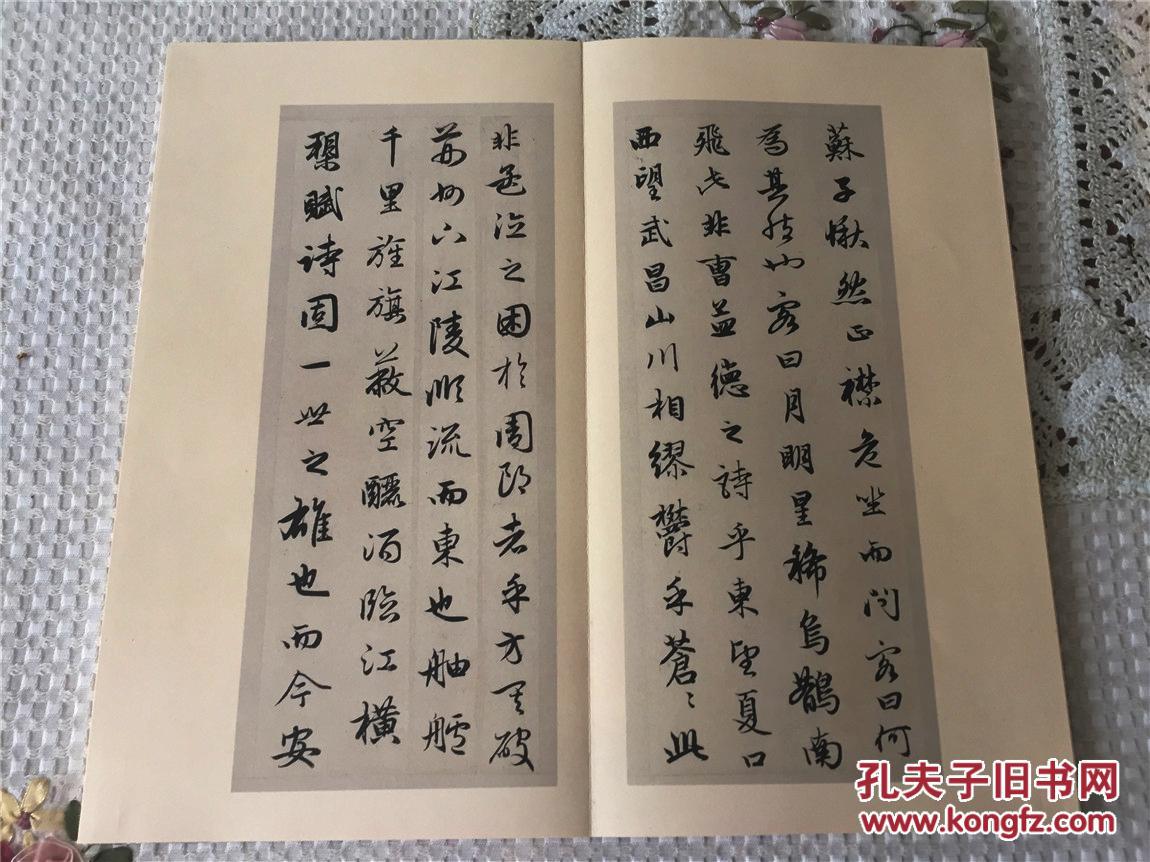 蘇子愀然正襟危坐而问客曰何
為其然也客曰月明星稀烏鵲南
飛此非曹孟德之詩乎東望夏口
西望武昌山川相繆鬱乎蒼〻此
非孟德之困於周郎者乎方其破
荊州下江陵順流而東也舳艫
千里旌旗蔽空釃酒臨江橫
槊賦诗固一世之雄也而今安
孔夫子旧书网
www.kongfz.com